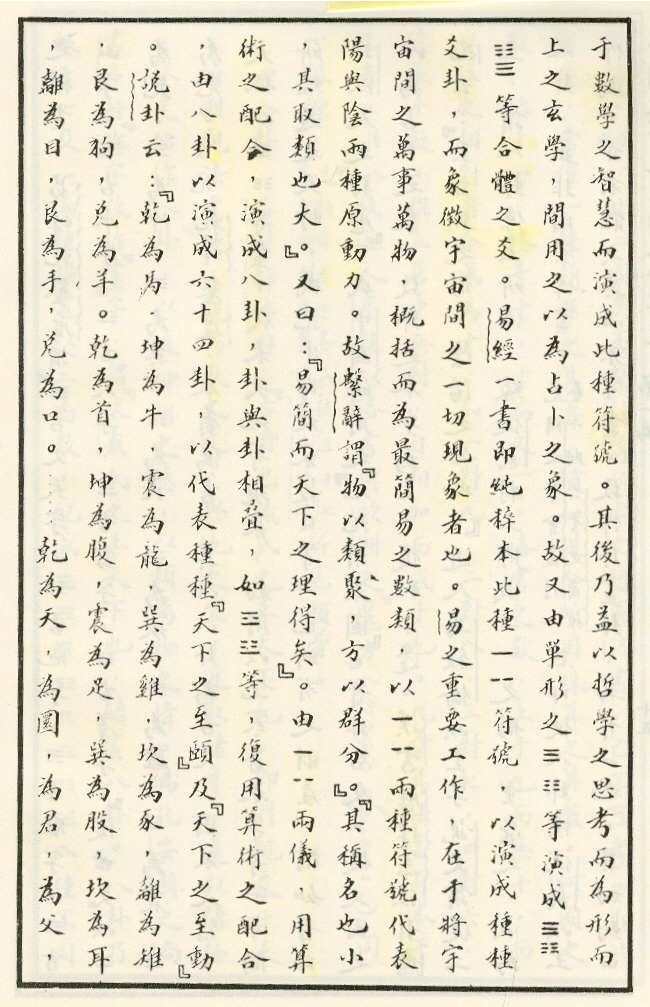 于數學之智慧而演成此種符號。其後乃益以哲學之思考而為形而
上之玄學間用之以為占卜之象。故又由單形之☰☷等演成䷀䷁
䷁䷀等合體之爻。易經一書即純粹本此種⚊⚋符號，以演成種種
爻卦，而象徵宇宙間之一切現象者也。易之重要工作，在于將宇
宙間之萬事萬物，概括而為最簡易之數類，以⚊⚋兩種符號代表
陽與陰兩種原動力。故繫辭謂『物以類聚，方以群分』。『其稱名也小
，其取類也大。』又曰：『易簡而天下之理得矣』。由⚊⚋兩儀，用算
術之配合，演成八卦，卦與卦相叠，如☰☷等，復用算術之配合
，由八卦以演成六十四卦，以代表種種『天下之至賾』及『天下之至動』
。說卦云：『乾為馬，坤為牛，震為龍，巽為雞，坎為豕，離為雉
，艮為狗，兌為羊。乾為首，坤為腹，震為足，巽為股，坎為耳
，離為目，艮為手，兌為口。……乾為天，為圜，為君，為父，